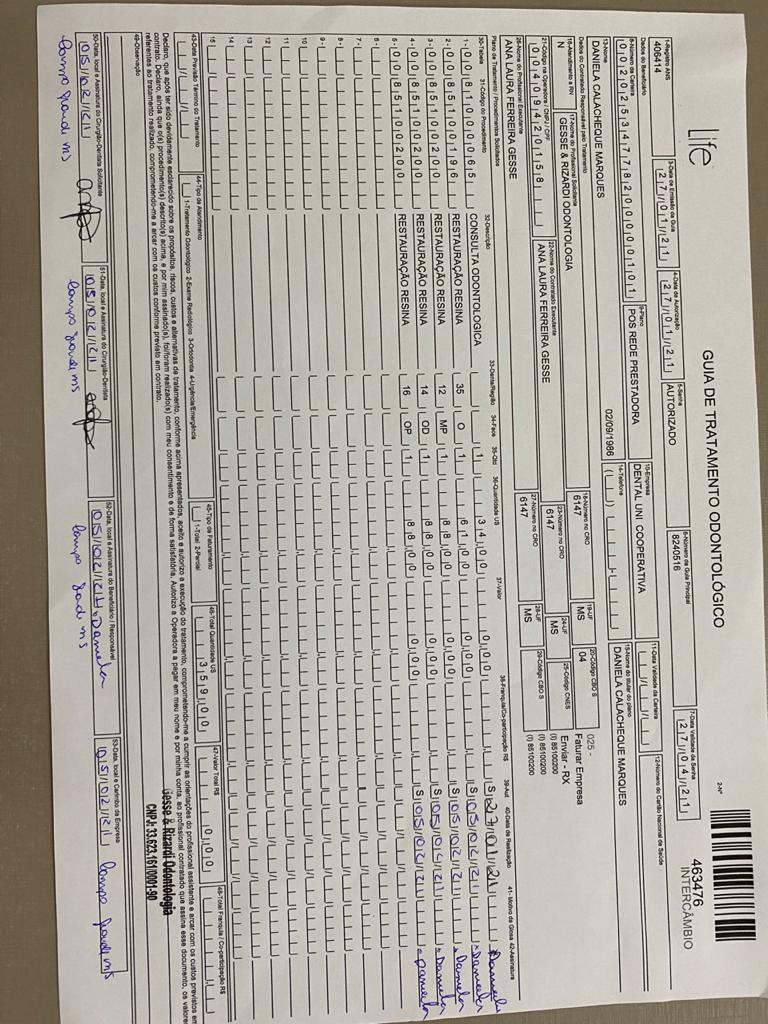 Life
GUIA DE TRATAMENTO ODONTOLÓGICO
2-Nº
463476
INTERCÂMBIO
1-Registro ANS
406414
3-Data de Emissão da Guia
27/01/21
4-Data de Autorização
27/01/21
5-Senha
AUTORIZADO
6-Número da Guia Principal
8240516
7-Data Validade da Senha
27/04/21
Dados do Beneficiário
8-Número da Carteira
00202534778200000101
9-Plano
POS REDE PRESTADORA
10-Empresa
DENTAL UNI COOPERATIVA
11-Data Validade da Carteira
12-Número do Cartão Nacional de Saúde
13-Nome
DANIELA CALACHEQUE MARQUES
02/09/1986
14-Telefone
15-Nome do titular do plano
DANIELA CALACHEQUE MARQUES
Dados do Contratado Responsável pelo Tratamento
16-Atendimento a RN
N
17-Nome do Profissional Solicitante
GESSE & RIZARDI ODONTOLOGIA
18-Número no CRO
6147
19-UF
MS
20-Código CBO S
04
025 -
Faturar Empresa
21-Código na Operadora / CNPJ / CPF
00400942015
22-Nome do Contratado Executante
ANA LAURA FERREIRA GESSE
23-Número no CRO
6147
24-UF
MS
25-Código CNES
Enviar - RX
(I) 85100200
(I) 85100200
(I) 85100200
26-Nome do Profissional Executante
ANA LAURA FERREIRA GESSE
27-Número no CRO
6147
28-UF
MS
29-Código CBO S
Plano de Tratamento / Procedimentos Solicitados
30-Tabela 31-Código do Procedimento 32-Descrição 33-Dente/Região 34-Face 35-Qtd 36-Quantidade US 37-Valor 38-Franquia/Co-participação R$ 39-Aut 40-Data de Realização 41- Motivo da Glosa 42-Assinatura
1- 00 81000065 CONSULTA ODONTOLOGICA 1 34,00 0,00 S 27/01/21 Daniela
2- 00 85100196 RESTAURAÇÃO RESINA 35 O 1 61,00 0,00 S 05/02/21 Daniela
3- 00 85100200 RESTAURAÇÃO RESINA 12 MP 1 88,00 0,00 S 05/02/21 Daniela
4- 00 85100200 RESTAURAÇÃO RESINA 14 OD 1 88,00 0,00 S 05/02/21 Daniela
5- 00 85100200 RESTAURAÇÃO RESINA 16 OP 1 88,00 0,00 S 05/02/21 Daniela
6-
7-
8-
9-
10
11
12
13
14
15
43-Data Previsão Término do Tratamento
44-Tipo de Atendimento
1-Tratamento Odontológico 2-Exame Radiológico 3-Ortodontia 4-Urgência/Emergência
45-Tipo de Faturamento
1-Total 2-Parcial
46-Total Quantidade US
359,00
47-Valor Total R$
0,00
48-Total Franquia / Co-participação R$
Declaro, que após ter sido devidamente esclarecido sobre os propósitos, riscos, custos e alternativas de tratamento, conforme acima apresentados, aceito e autorizo a execução do tratamento, comprometendo-me a cumprir as orientações do profissional assistente e arcar com os custos previstos em
contrato. Declaro, ainda que o(s) procedimento(s) descrito(s) acima, e por mim assinado(s), foi/foram realizado(s) com meu consentimento e de forma satisfatória. Autorizo a Operadora a pagar em meu nome e por minha conta, ao profissional contratado que assina esse documento, os valores
referentes ao tratamento realizado, comprometendo-me a arcar com os custos conforme previsto em contrato.
49-Observação
Gesse & Rizardi Odontologia
CNPJ: 33.623.161/0001-90
50-Data, local e Assinatura do Cirurgião-Dentista Solicitante
05/02/21
Campo Grande MS
51-Data, local e Assinatura do Cirurgião-Dentista
05/02/21
Campo Grande MS
52-Data, local e Assinatura do Beneficiário / Responsável
05/02/21 Daniela
Campo Grande MS
53-Data, local e Carimbo da Empresa
05/02/21 Campo Grande MS